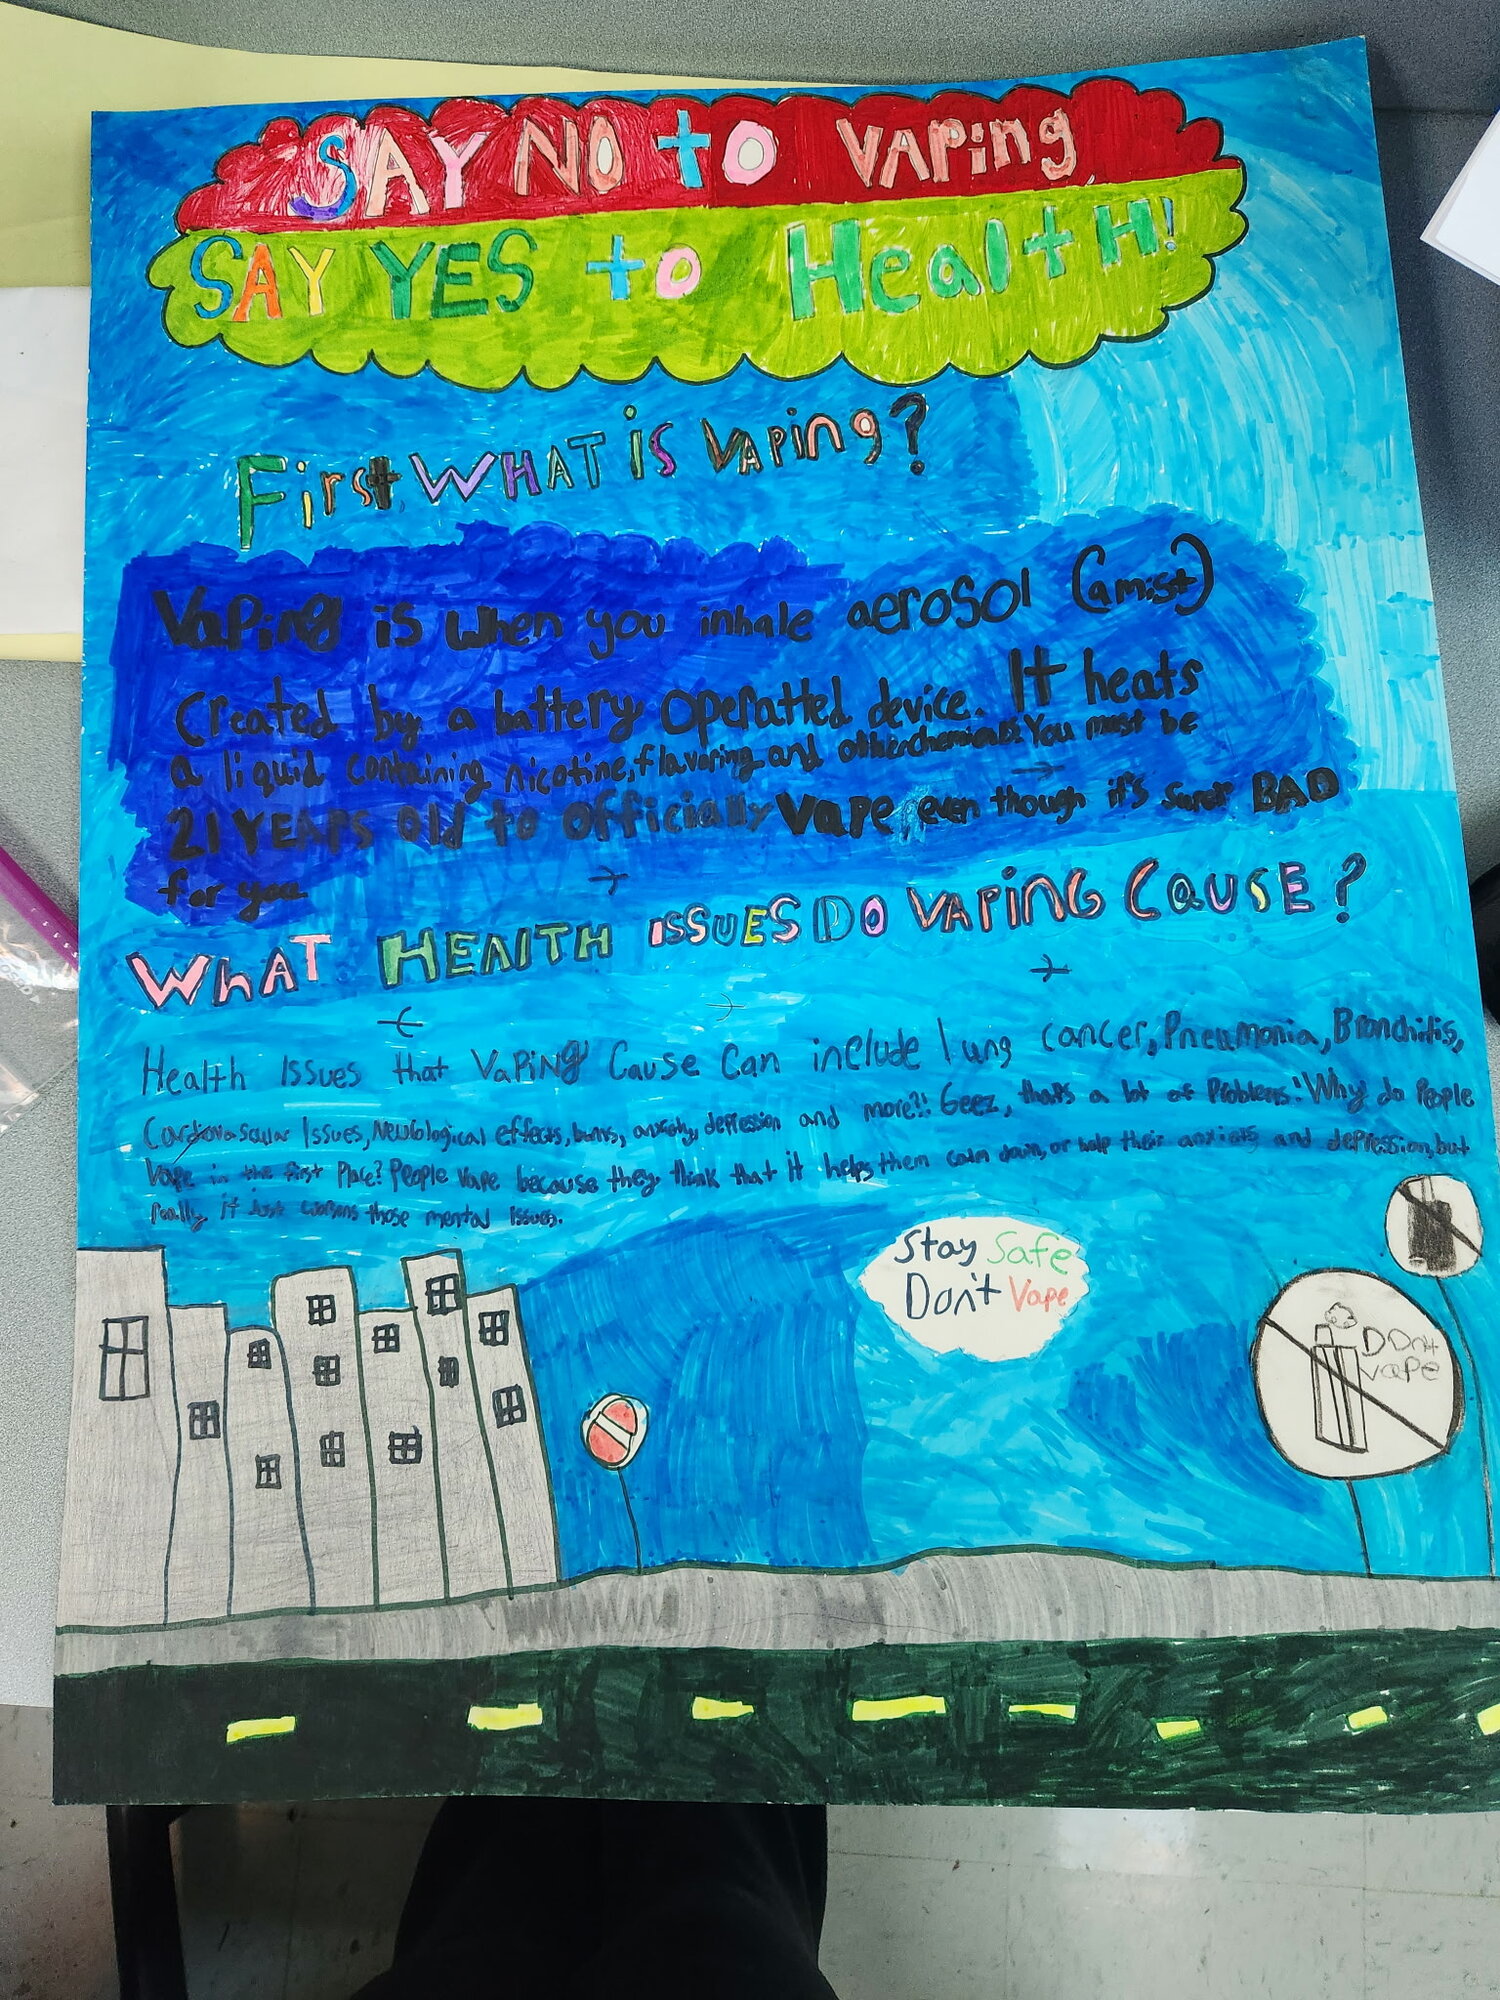 SAY NO to VAPing
SAY YES to HealtH!
First, WHAT iS VAPing?
Vaping is when you inhale aerosol (a mist)
Created by a battery Operatted device. It heats
a liquid containing nicotine, flavoring and other chemicals. You must be
21 YEARS Old to officially Vape, even though it's super BAD
for you
WhAT HEAlTH ISSUES DO VAPING CAUSE?
Health Issues that VaPiNg Cause Can include lung cancer, Pneumonia, Bronchitis,
Cardovascular Issues, Neurological effects, burns, anxiety, depression and more?! Geez, that's a lot of Problems! Why do People
Vape in the first Place? People Vape because they think that it helps them calm down, or help their anxiety and depression, but
really, it just worsens those mental issues.
Stay Safe
Don't Vape
DOn't
vape